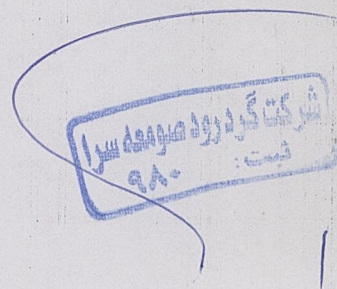 شرکت گردرود صومعه سرا
ثبت: ۹۸۰